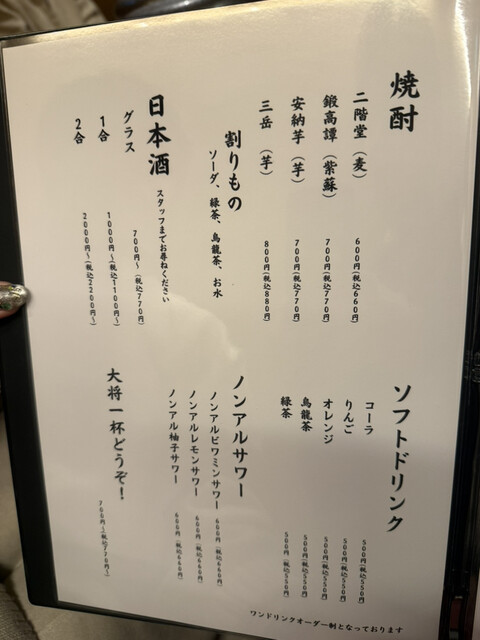 焼酎
二階堂（麦） 600円（税込660円）
鍛高譚（紫蘇） 700円（税込770円）
安納芋（芋） 700円（税込770円）
三岳（芋） 800円（税込880円）
割りもの
ソーダ、緑茶、烏龍茶、お水
日本酒 スタッフまでお尋ねください
グラス 700円～（税込770円）
1合 1000円～（税込1100円～）
2合 2000円～（税込2200円～）
ソフトドリンク
コーラ 500円（税込550円）
りんご 500円（税込550円）
オレンジ 500円（税込550円）
烏龍茶 500円（税込550円）
緑茶 500円（税込550円）
ノンアルサワー
ノンアルビワミンサワー 600円（税込660円）
ノンアルレモンサワー 600円（税込660円）
ノンアル柚子サワー 600円（税込660円）
大将一杯どうぞ！ 700円～（税込770円～）
ワンドリンクオーダー制となっております